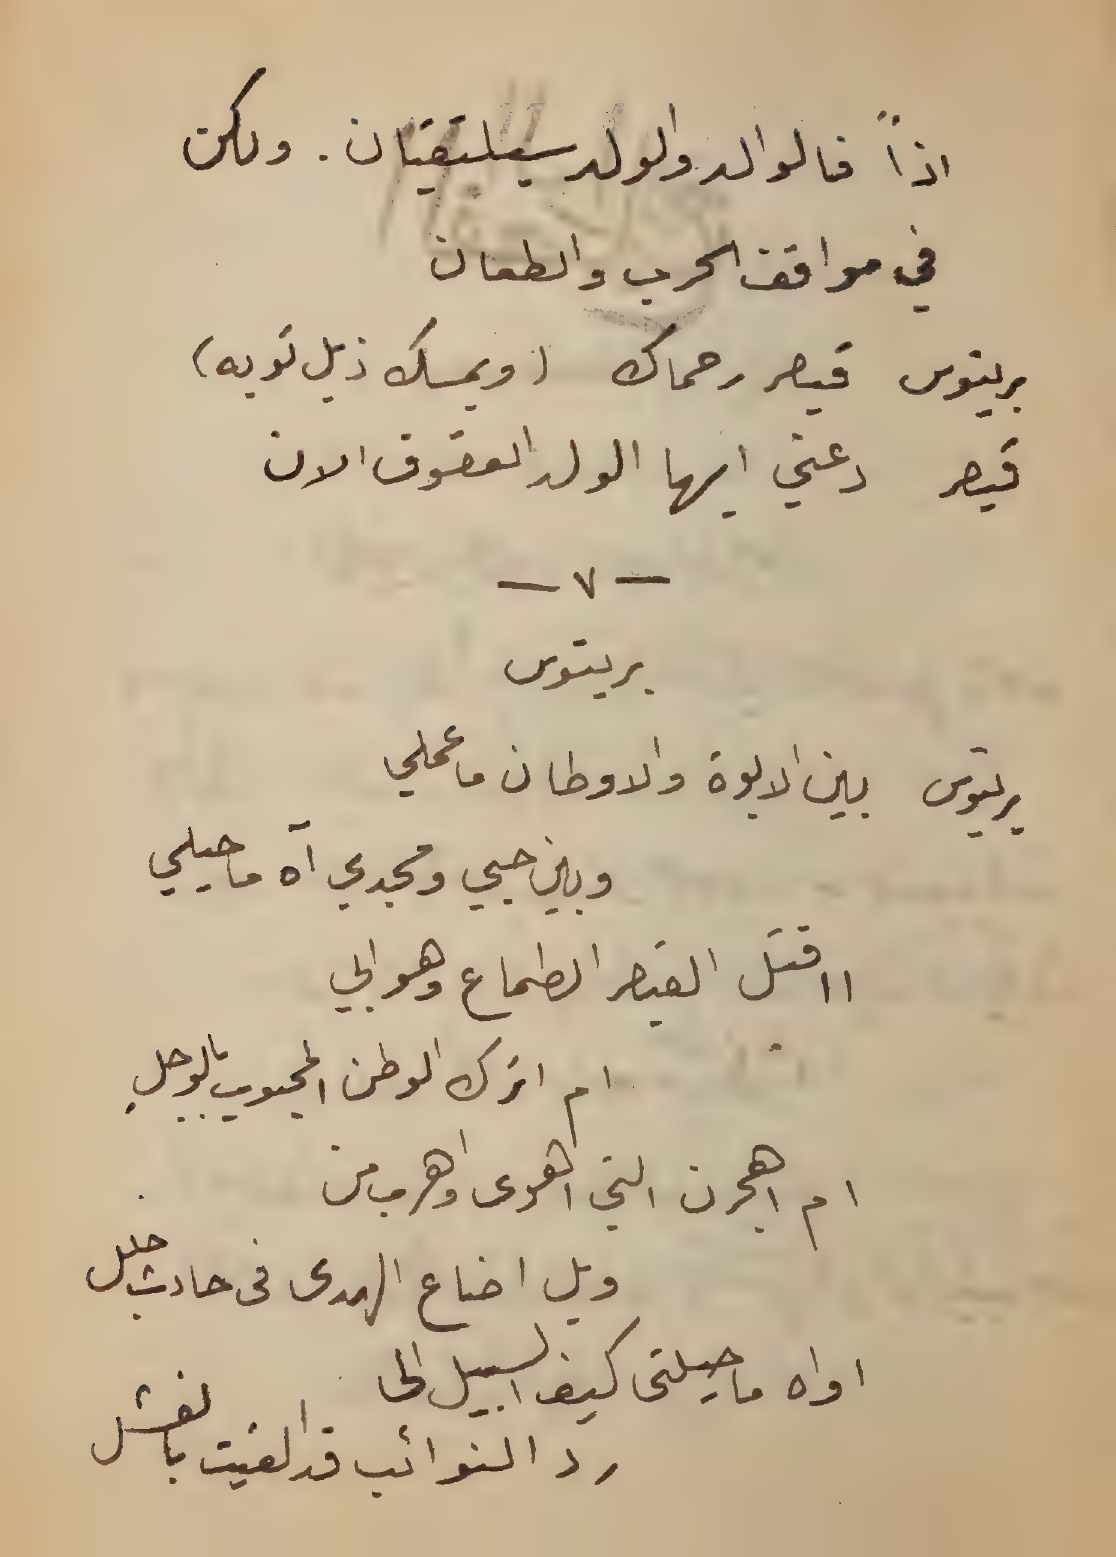 اذاً فالوالد والولد سيلتقيان . ولكن
في مواقف الحرب والطعان
بريتوس قيصر رحماك (ويمسك ذيل ثوبه)
قيصر دعني ايها الولد العقوق الان
— ٧ —
بريتوس
بريتوس بين الابوة والاوطان ما عملي
وبين حبي ومجدي آه ما حيلي
ااقتل القيصر الطماع وهو ابي
ام اترك الوطن المحبوب بالوحل
ام اهجرن التي اهوى واهرب من
ويل اضاع الهدى في حادث جلل
اواه ما حيلتي كيف السبيل الى
رد النوائب قد القيت بالفشل